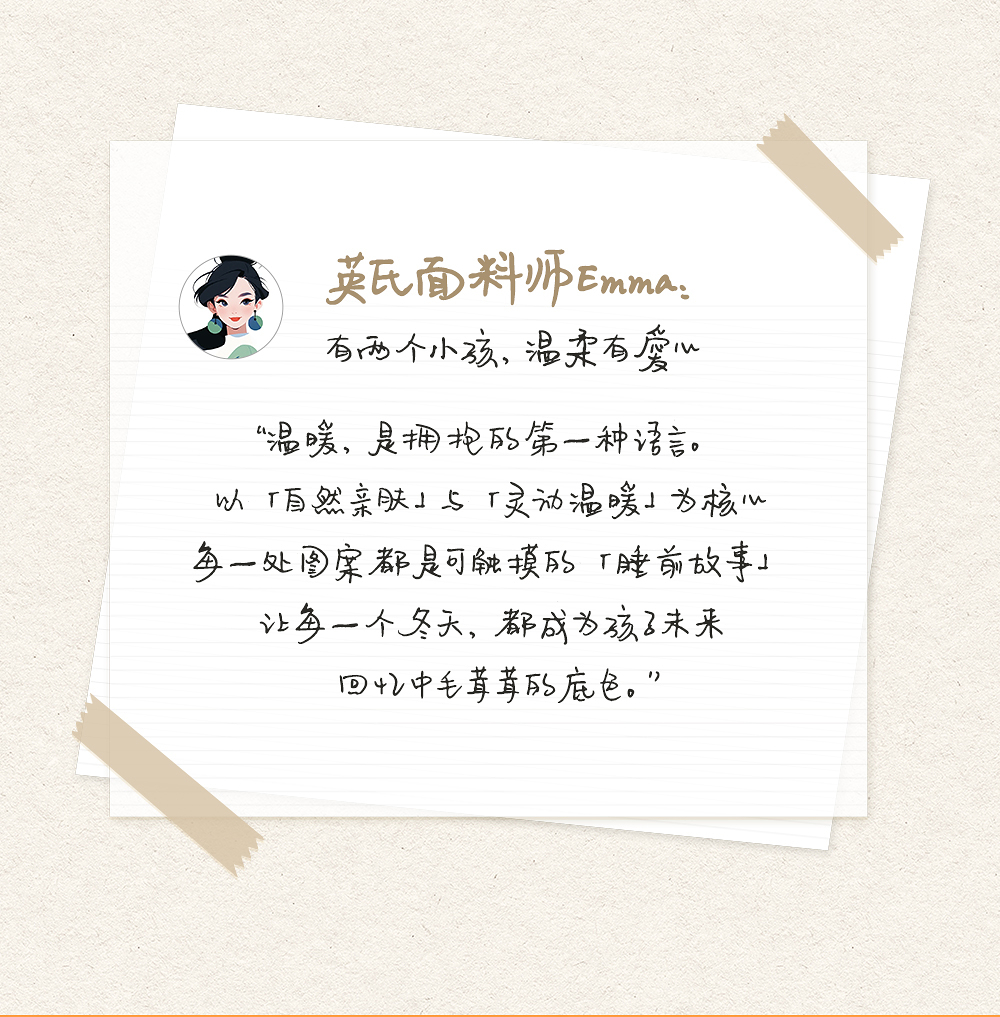 英氏面料师Emma:
有两个小孩,温柔有爱心
“温暖,是拥抱的第一种语言。
以「自然亲肤」与「灵动温暖」为核心
每一处图案都是可触摸的「睡前故事」
让每一个冬天,都成为孩子未来
回忆中毛茸茸的底色。”